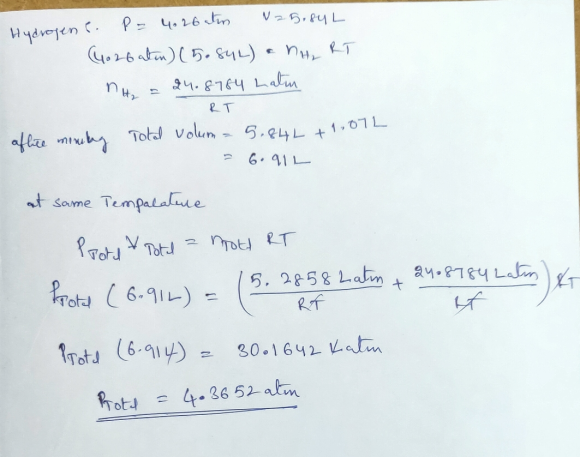 Hydrogen : P = 4.26 atm V = 5.84 L
(4.26 atm) (5.84 L) = nH₂ RT
nH₂ = 24.8784 L atm / RT
after mixing Total Volum = 5.84 L + 1.07 L
= 6.91 L
at same Tempalature
PTotal VTotal = nTotal RT
PTotal (6.91 L) = (5.2858 L atm / RT + 24.8784 L atm / RT) RT
PTotal (6.91 L) = 30.1642 L atm
PTotal = 4.3652 atm